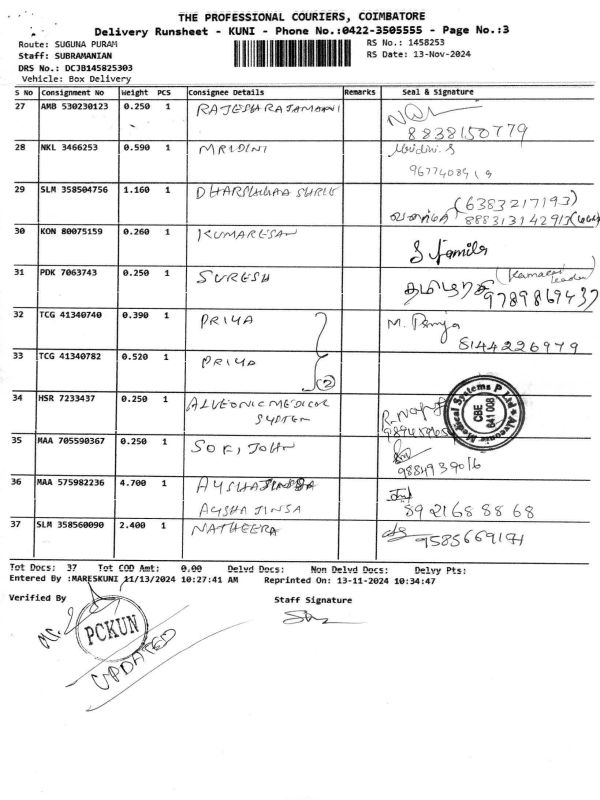 THE PROFESSIONAL COURIERS, COIMBATORE
Delivery Runsheet - KUNI - Phone No.:0422-3505555 - Page No.:3
Route: SUGUNA PURAM RS No.: 1458253
Staff: SUBRAMANIAN RS Date: 13-Nov-2024
DRS No.: DCJB145825303
Vehicle: Box Delivery
S No Consignment No Weight PCS Consignee Details Remarks Seal & Signature
27 AMB 530230123 0.250 1 RAJESH RAJAMANI
8838150779
28 NKL 3466253 0.590 1 MRIDINI Mridini.S
29 SLM 358504756 1.160 1 (6383217193)
30 KON 80075159 0.260 1 KUMARESAN
31 PDK 7063743 0.250 1 SURESH
9789869437
32 TCG 41340740 0.390 1 PRIYA M.
8144226979
33 TCG 41340782 0.520 1 PRIYA
(2)
34 HSR 7233437 0.250 1 ALVEONIC MEDICAL
SYSTEM
Medical Systems P Ltd
CBE
641 008
35 MAA 705590367 0.250 1 SOFI JOHN
9884939016
36 MAA 575982236 4.700 1
AYSHA JINSA 8921688868
37 SLM 358560090 2.400 1 NATHEERA
Tot Docs: 37 Tot COD Amt: 0.00 Delvd Docs: Non Delvd Docs: Delvy Pts:
Entered By :MARESKUNI 11/13/2024 10:27:41 AM Reprinted On: 13-11-2024 10:34:47
Verified By Staff Signature
PCKUN
UPDATED